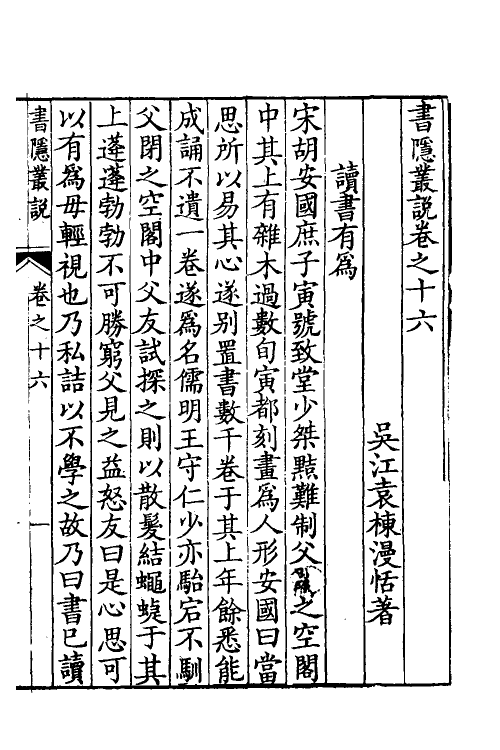 書隱叢說卷之十六
吳江袁棟漫恬著
讀書有爲
宋胡安國庶子寅號致堂少桀黠難制父閉之空閣
中其上有雜木過數旬寅都刻畫爲人形安國曰當
思所以易其心遂别置書數千卷于其上年餘悉能
成誦不遺一卷遂爲名儒明王守仁少亦駘宕不馴
父閉之空閣中父友試探之則以散髮結蠅蛱于其
上蓬蓬勃勃不可勝窮父見之益怒友曰是心思可
以有爲毋輕視也乃私詰以不學之故乃曰書已讀
書隱叢說
卷之十六
一